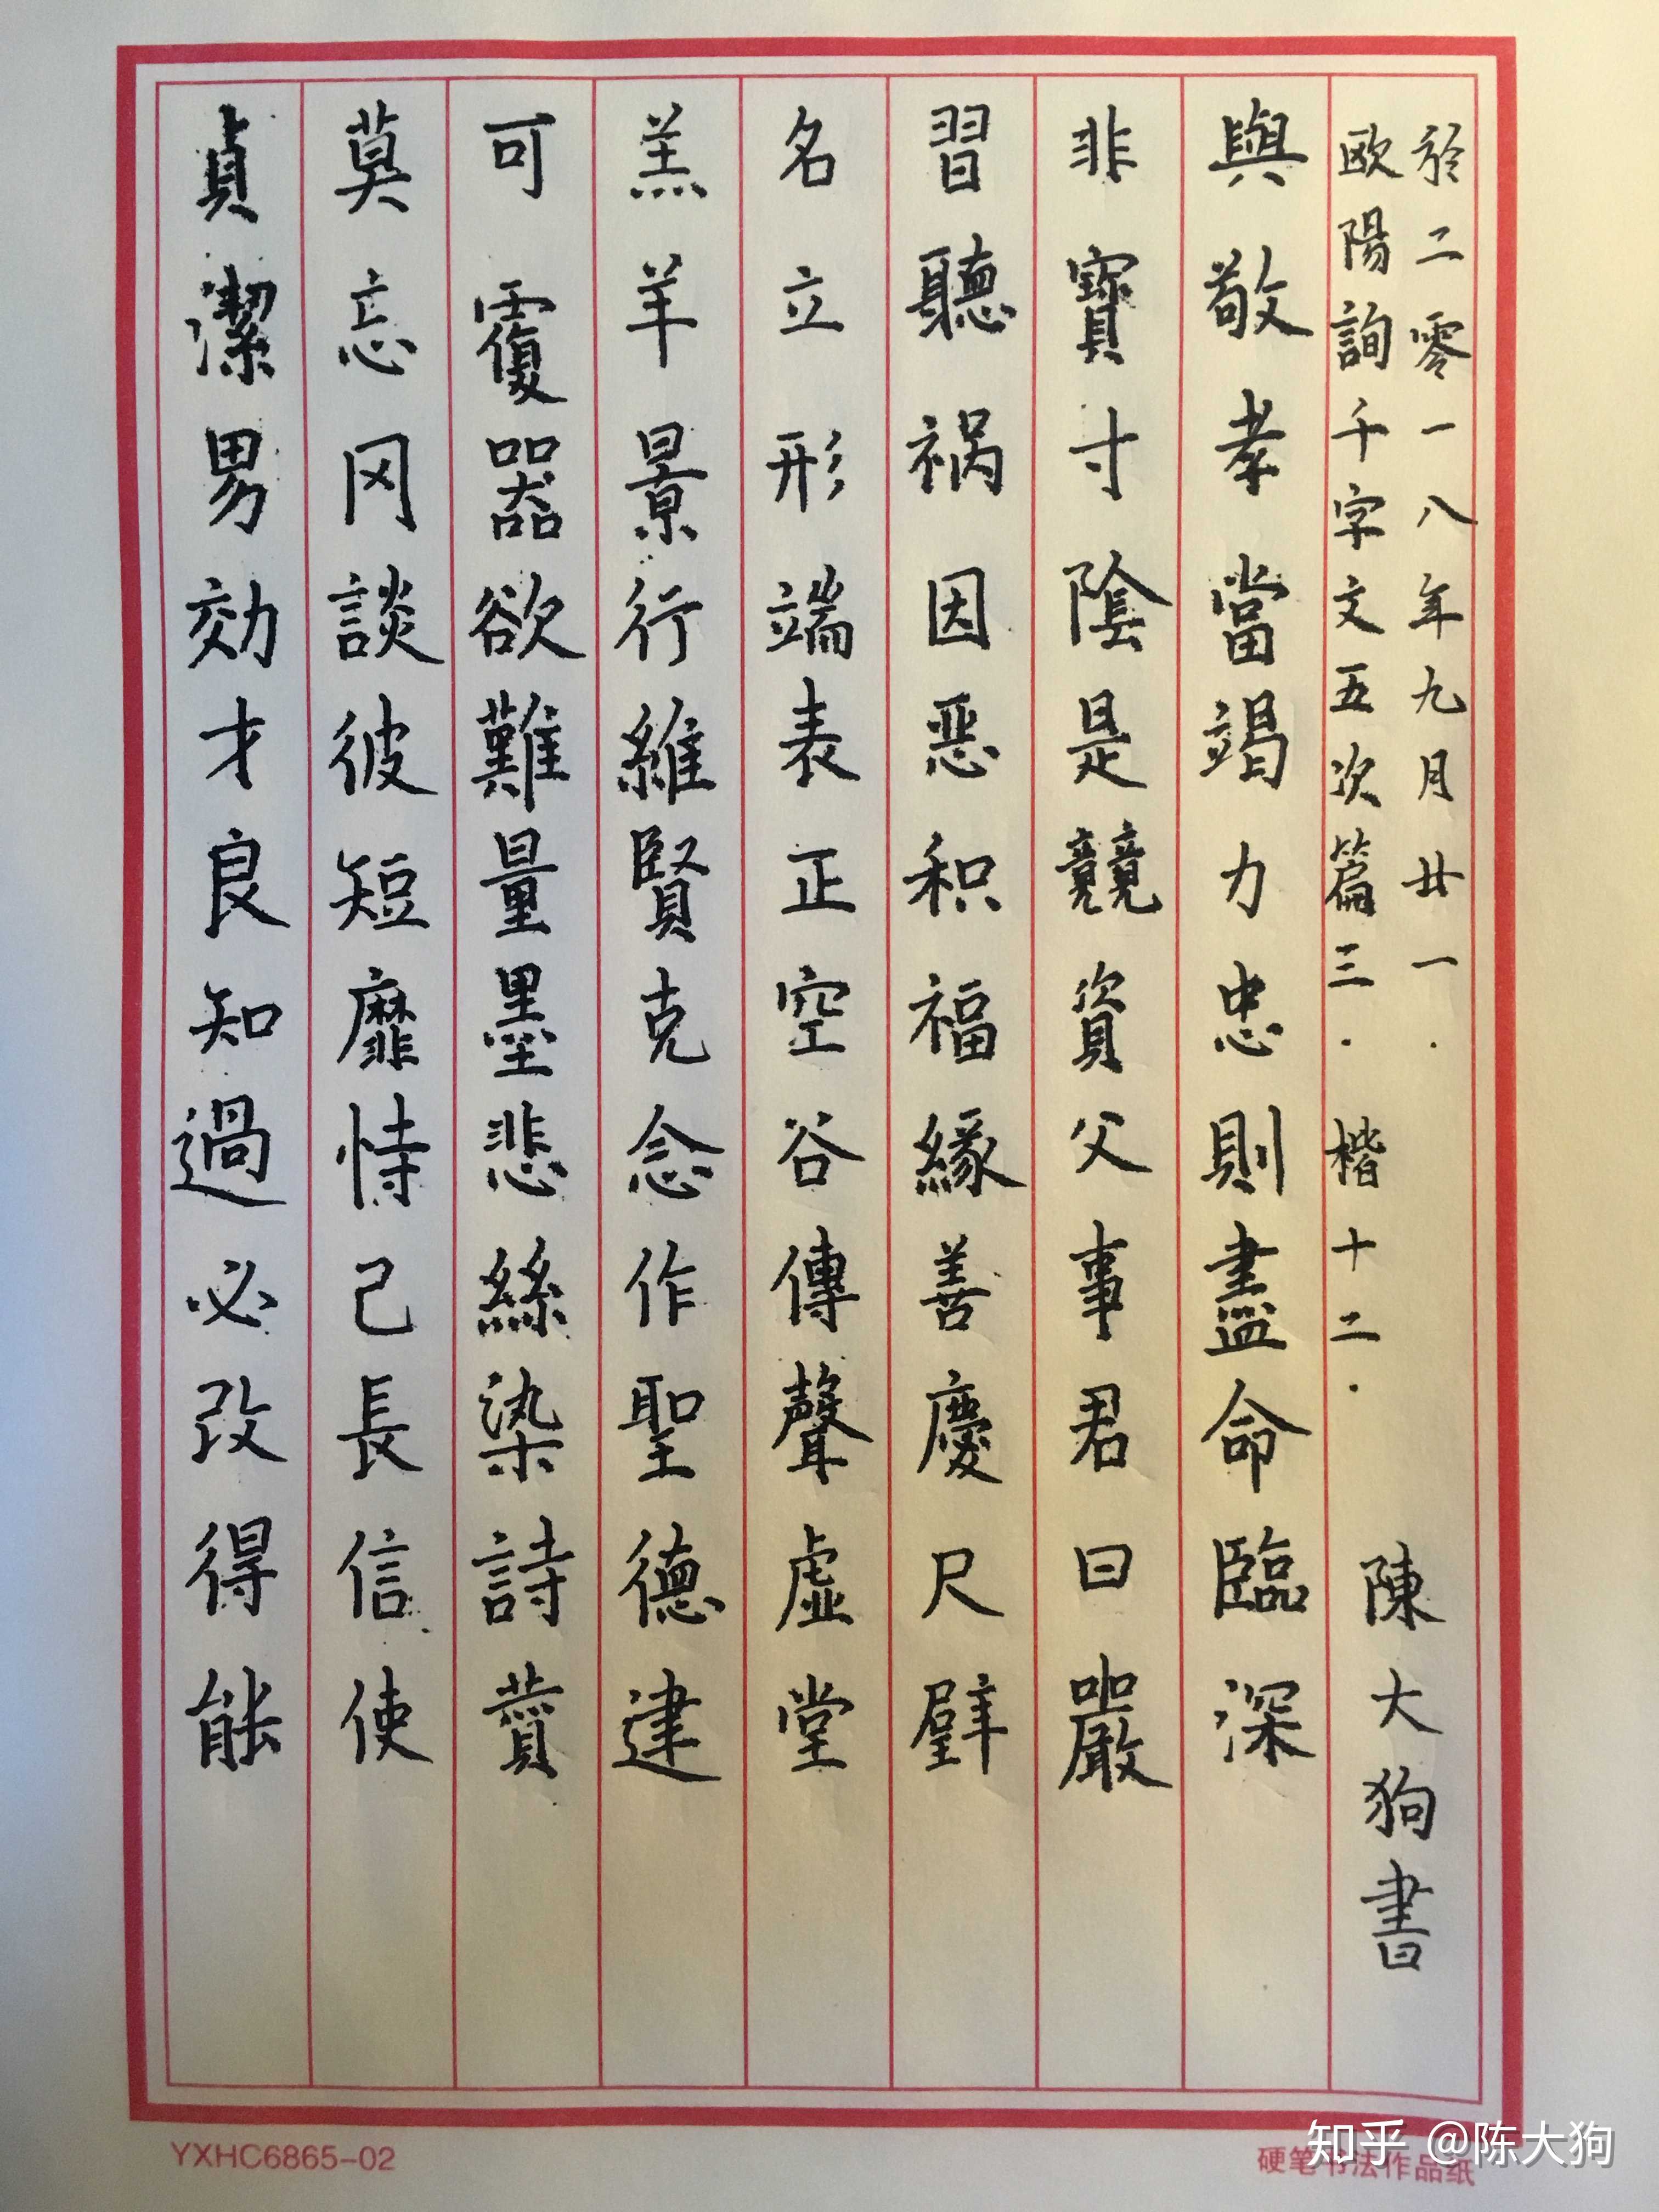 貞潔男効才良知過必改得能
莫忘冈談彼短靡恃己長信使
可覆器欲難量墨悲絲染詩賛
羔羊景行維賢克念作聖德建
名立形端表正空谷傳聲虚堂
習聽祸因恶积福緣善慶尺璧
非寶寸隂是競資父事君曰嚴
與敬孝當竭力忠則盡命臨深
欧陽詢千字文五次篇三.楷十二.
於二零一八年九月廿一.
陳大狗書
YXHC6865-02
硬笔书法作品纸
知乎 @陈大狗